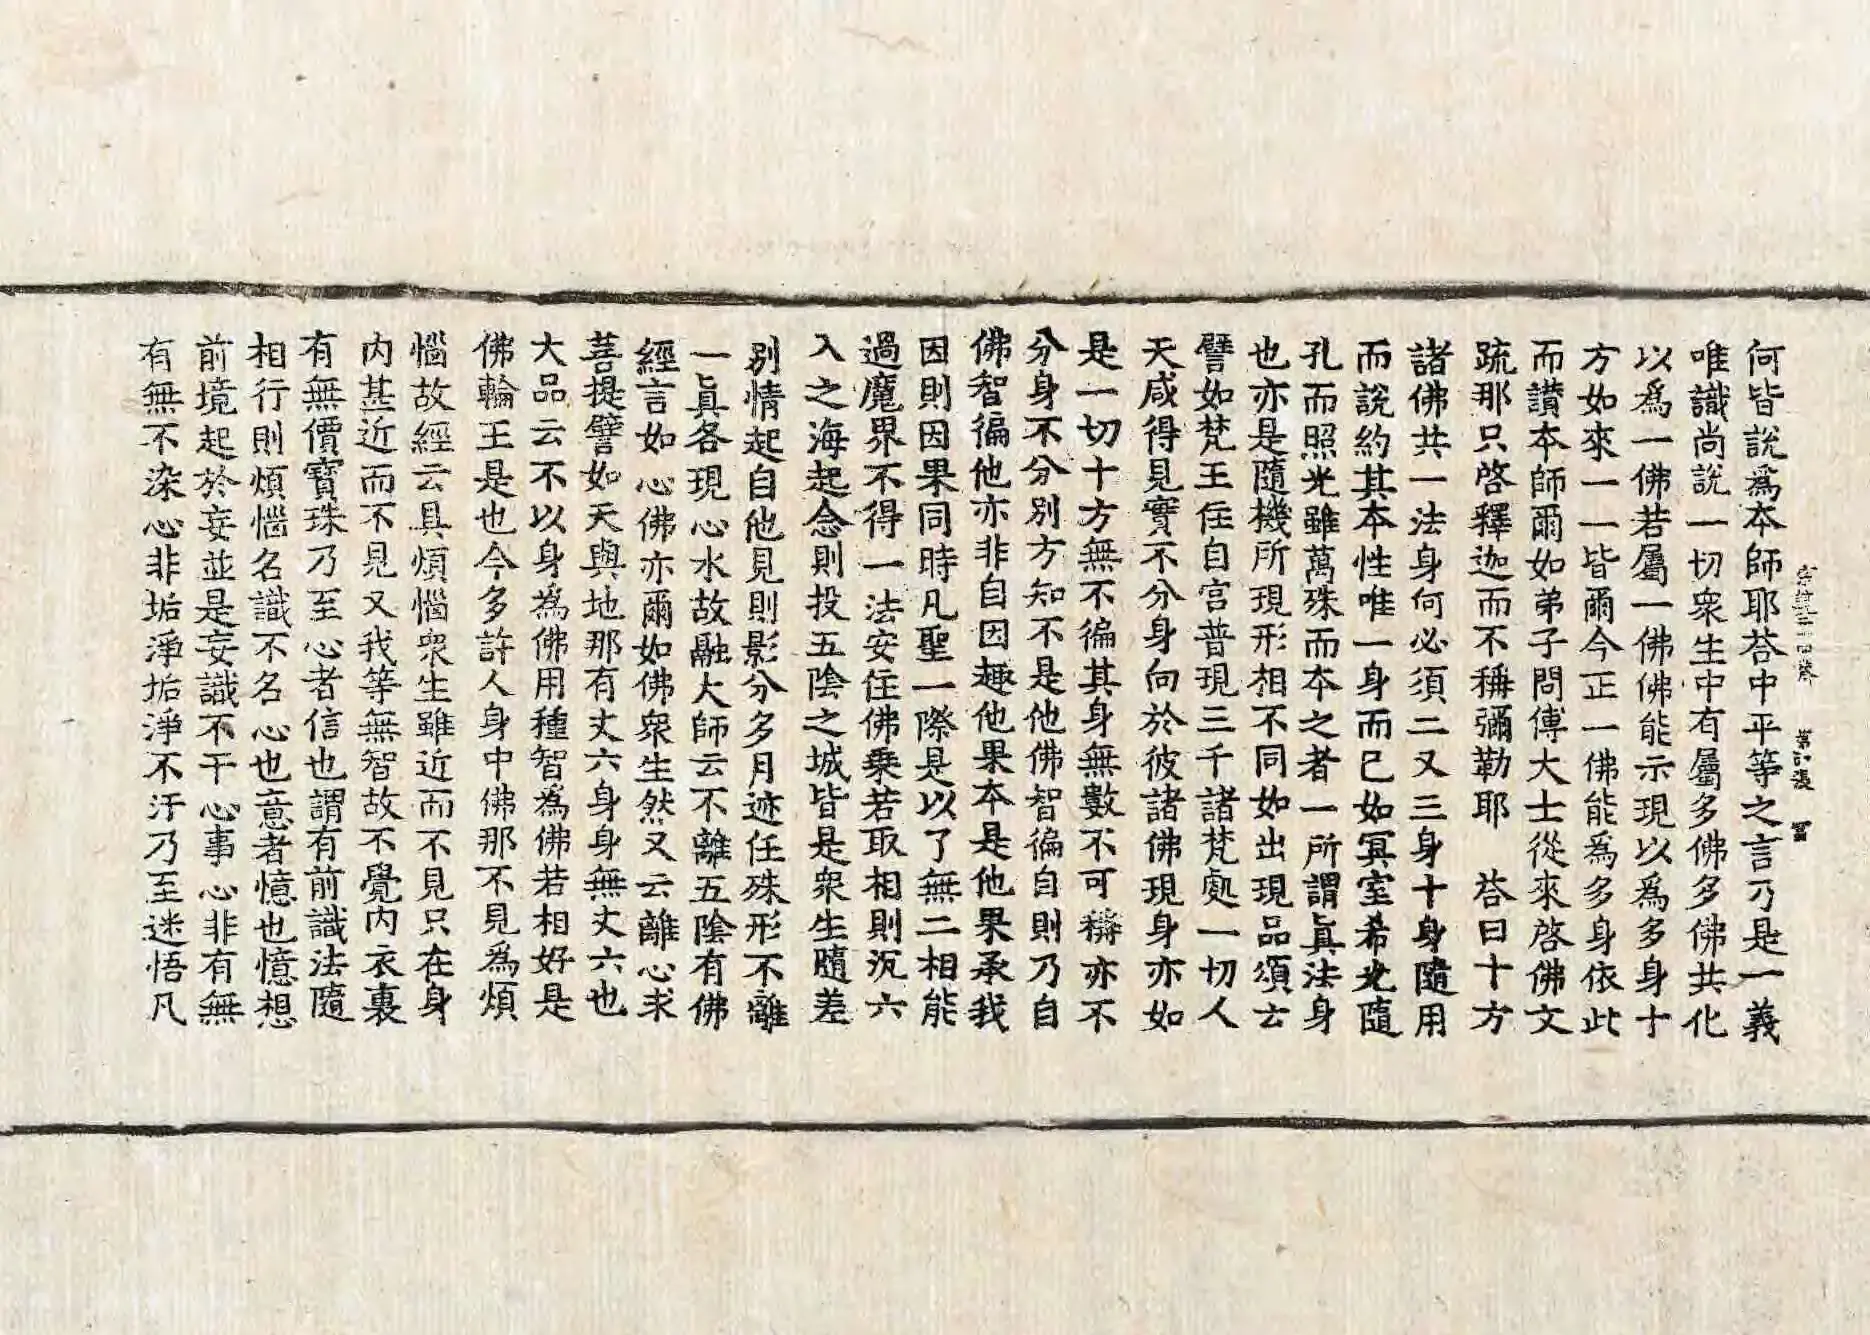 何皆說爲本師耶荅中平等之言乃是一義
唯識尚說一切衆生中有屬多佛多佛共化
以爲一佛若屬一佛佛能示現以爲多身十
方如來一一皆爾今正一佛能爲多身依此
而讚本師爾如弟子問傅大士從來啓佛文
疏那只啓釋迦而不稱彌勒耶 荅曰十方
諸佛共一法身何必須二又三身十身隨用
而說約其本性唯一身而已如冥室希光隨
孔而照光雖萬殊而本之者一所謂眞法身
也亦是隨機所現形相不同如出現品頌云
譬如梵王住自宮普現三千諸梵處一切人
天咸得見實不分身向於彼諸佛現身亦如
是一切十方無不徧其身無數不可稱亦不
分身不分別方知不是他佛智徧自則乃自
佛智徧他亦非自因趣他果本是他果承我
因則因果同時凡聖一際是以了無二相能
過魔界不得一法安住佛乗若取相則沉六
入之海起念則投五陰之城皆是衆生隨差
别情起自他見則影分多月迹任殊形不離
一眞各現心水故融大師云不離五陰有佛
經言如心佛亦爾如佛衆生然又云離心求
菩提譬如天與地那有丈六身身無丈六也
大品云不以身為佛用種智為佛若相好是
佛輪王是也今多許人身中佛那不見爲煩
惱故經云具煩惱衆生雖近而不見只在身
内甚近而不見又我等無智故不覺内衣裏
有無價寶珠乃至心者信也謂有前識法隨
相行則煩惱名識不名心也意者憶也憶想
前境起於妄並是妄識不干心事心非有無
有無不染心非垢淨垢淨不汙乃至迷悟凡